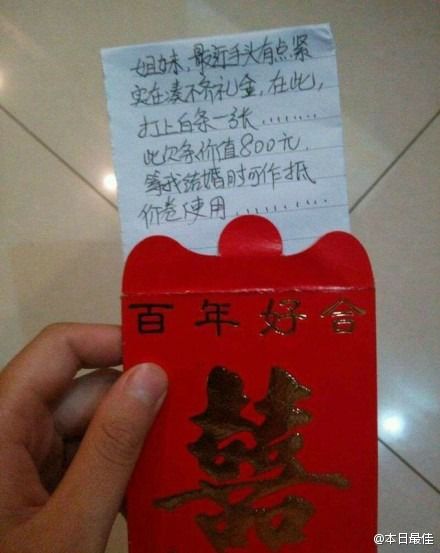 姐妹，最近手头有点紧
实在凑不齐礼金，在此，
打上白条一张........
此欠条价值800元.
等我结婚时可作抵
价卷使用..........
百年好合
囍
@本日最佳